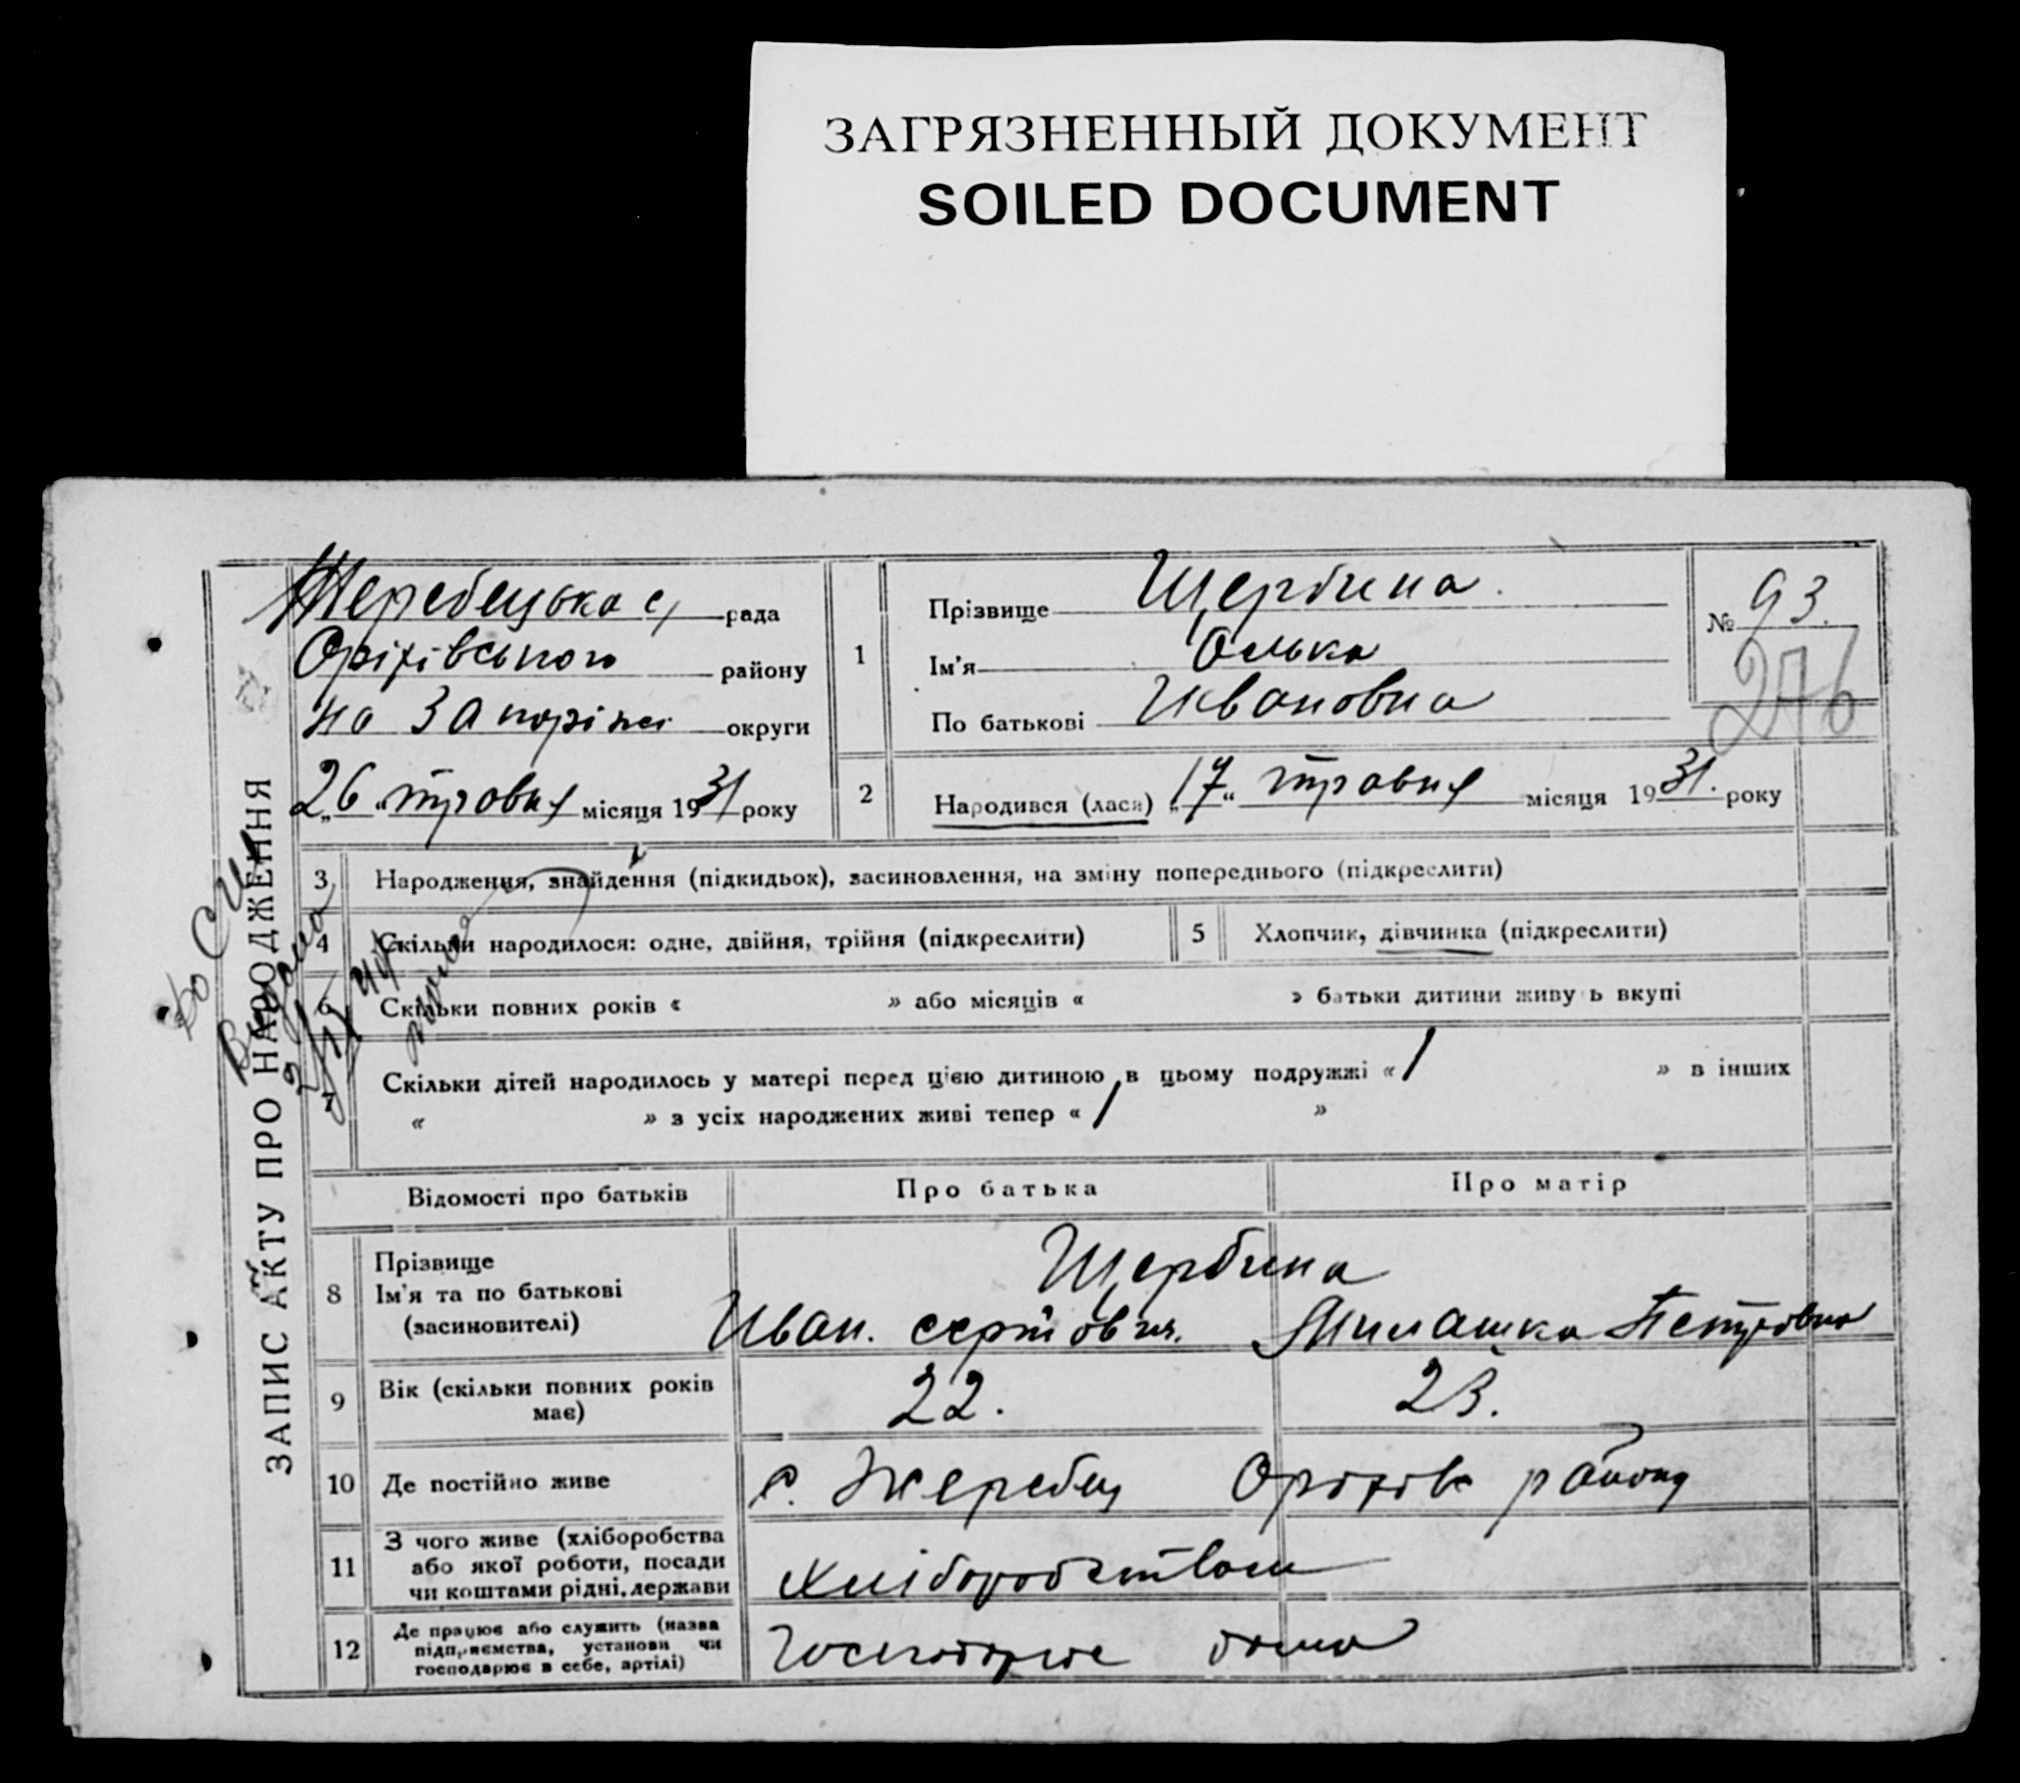 ЗАГРЯЗНЕННЫЙ ДОКУМЕНТ
SOILED DOCUMENT
ЗАПИС АКТУ ПРО НАРОДЖЕННЯ
Жеребецька с/ рада
Оріхівського району
на Запоріжі округи
„26“ травня місяця 1931 року
1
Прізвище Щербина.
Ім'я Олька
По батькові Ивановна
№ 93.
276
2
Народився (лася) „17“ травня місяця 1931. року
3 Народження, знайдення (підкидьок), засиновлення, на зміну попереднього (підкреслити)
4 Скільки народилося: одне, двійня, трійня (підкреслити)
5 Хлопчик, дівчинка (підкреслити)
6 Скільки повних років « » або місяців « » батьки дитини живуть вкупі
7 Скільки дітей народилось у матері перед цією дитиною в цьому подружжі « 1 » в інших
« » з усіх народжених живі тепер « 1 »
Відомості про батьків Про батька Про матір
8 Прізвище
Ім'я та по батькові
(засиновителі)
Щербина
Иван. Петровна
9 Вік (скільки повних років має)
22. 23.
10 Де постійно живе
с. Жеребец Оріхівс району
11 З чого живе (хліборобства
або якої роботи, посади
чи коштами рідні, держави
Хліборобством
12 Де працює або служить (назва
підприємства, установи чи
господарює в себе, артілі)
Господарює дома